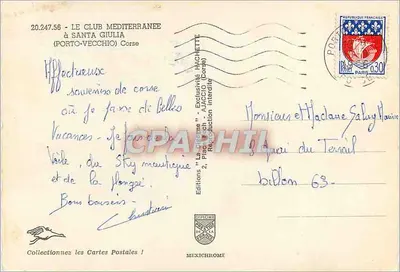 20.247.56 - LE CLUB MEDITERRANEE
à SANTA GIULIA
(PORTO-VECCHIO) Corse
Affectueux
souvenirs de corse
où je passe de belles
vacances - Je fais de la
voile, du sky nautique
et de la plongée.
Bons baisers -
Collectionnez les Cartes Postales !
Editions "La Cigogne" - Exclusivité HACHETTE
2, Place - AJACCIO (Corse)
Reproduction interdite
CPAPHIL
MEXICHROME
REPUBLIQUE FRANCAISE
0,30
PARIS
Monsieur et Madame Maurice
quai du Terrail
billom 63 -